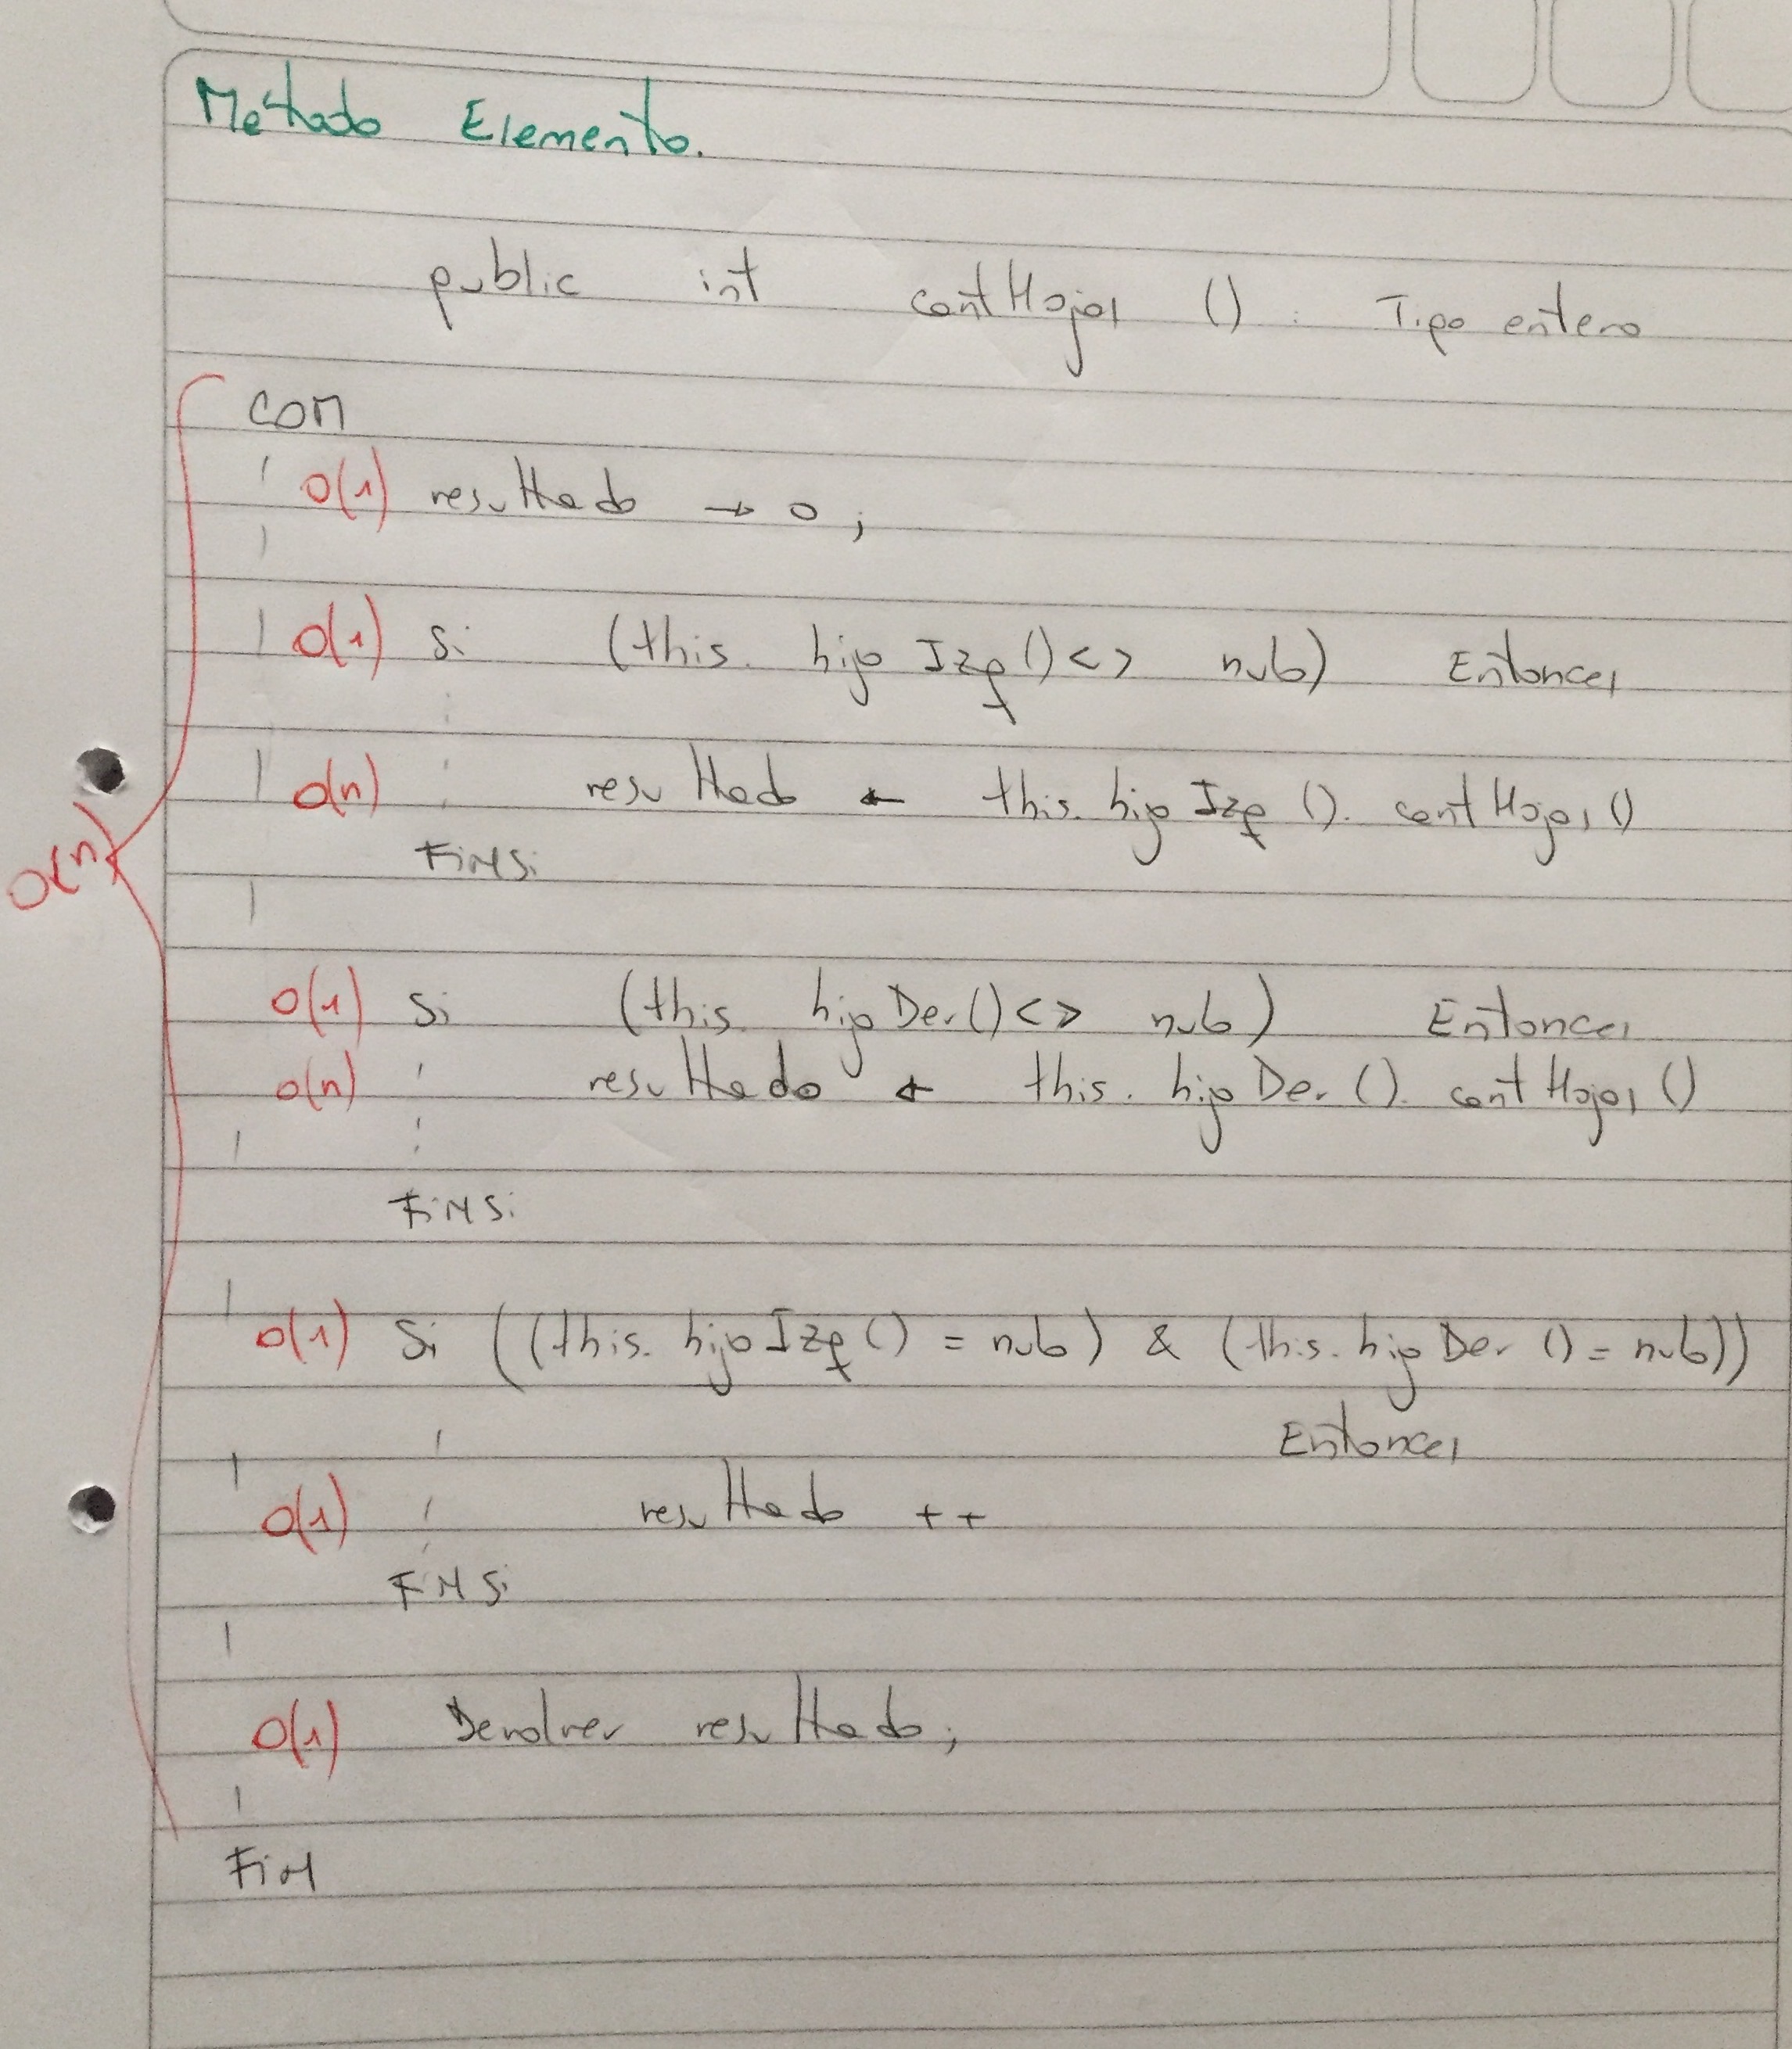 Método Elemento.
public int contHojas () : Tipo entero
COM
O(1) resultado → 0;
O(1) Si (this. hijo Izq () <> nulo) Entonces
O(n) resultado ← this. hijo Izq (). contHojas ()
FINSi
O(n)
O(1) Si (this. hijo Der () <> nulo) Entonces
O(n) resultado ← this. hijo Der (). contHojas ()
FINSi
O(1) Si ((this. hijo Izq () = nulo) & (this. hijo Der () = nulo))
Entonces
O(1) resultado ++
FINSi
O(1) Devolver resultado;
FIN